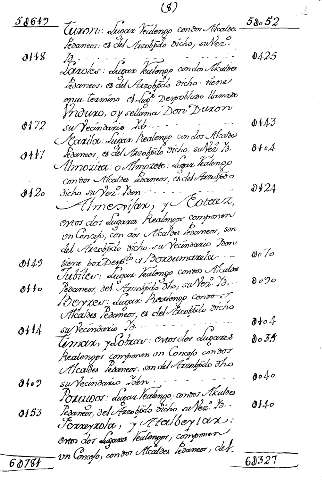 (8)
58649 58052
Turon: Lugar Realengo con dos Alcaldes
Pedaneos: es del Arzobispo dicho, su Vec.º
0448 Yd. 0425
Lugar Realengo con dos Alcaldes
Pedaneos es del Arzobispo dicho tiene
en su termino à Lug.r Despoblado llamado
Unduro, oy se llama Don Duron
0472 su Vecindario Yd. 0443
Lugar Realengo con dos Alcaldes
0447 Pedaneos, es del Arzobispo dicho su Vec.º Yd. 0404
Almoxita, o Almoxeta: Lugar Realengo
con dos Alcaldes Pedaneos, es del Arzobispo
0420 dicho su Vec.º Yden 0424
Almexixar, y Notaez,
estos dos Lugares Realengos componen
un Concejo, con dos Alcaldes Pedaneos, son
del Arzobispo dicho, su Vecindario Yden
tiene por Desp.do à Barxumarela
0443 0070
Jubiles: Lugar Realengo con dos Alcaldes
0440 Pedaneos, del Arzobispo dho, su Vec.º Yd. 0090
Lugar Realengo con
Alcaldes Pedaneos, es del Arzobispo dicho
0414 su Vecindario Yd. 0404
Timar, y Lobras: estos dos Lugares 0035
Realengos componen un Concejo con dos
Alcaldes Pedaneos, son del Arzobispo dho
0409 su Vecindario Yden 0040
Lugar Realengo con dos Alcaldes
0453 Pedaneos, del Arzobispo dicho su Vec.º Yd. 0440
Ferreyrola, y Atalbeytar:
estos dos Lugares Realengos, componen
un Concejo, con dos Alcaldes Pedaneos, del
60784 60327